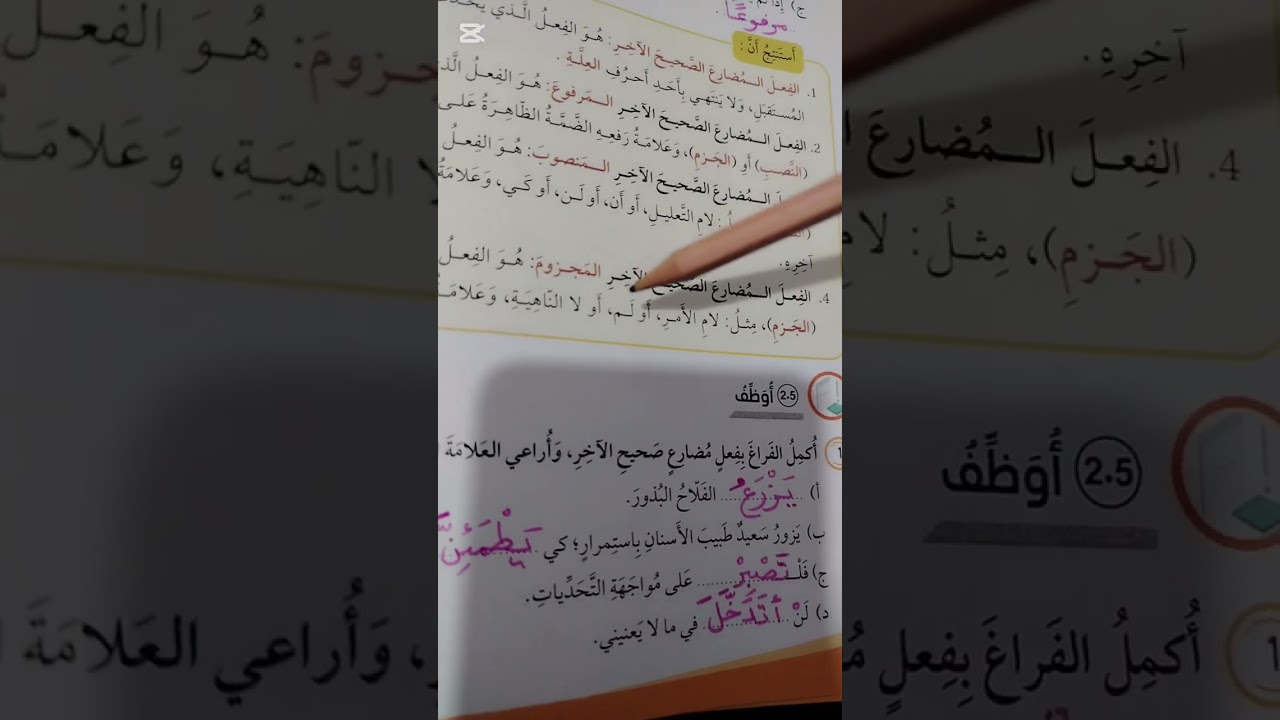 ج) إذا لم
مرفوعًا
أَستَنتِجُ أَنَّ:
1. الفِعلَ الـمُضارِعَ الصَّحيحَ الآخِرِ: هُوَ الفِعلُ الَّذي
المُستَقبَلِ، وَلا يَنتَهي بِأَحَدِ أَحرُفِ العِلَّةِ.
2. الفِعلَ الـمُضارِعَ الصَّحيحَ الآخِرِ المَـرفوعَ: هُوَ الفِعلُ
(النَّصبِ) أَوِ (الجَـزمِ)، وَعَلامَةُ رَفعِهِ الضَّمَّةُ الظّاهِرَةُ عَلى
الـمُضارِعَ الصَّحيحَ الآخِرِ الـمَنصوبَ: هُوَ الفِعلُ
لامِ التَّعليلِ، أَو أَن، أَو لَن، أَو كَي، وَعَلامَةُ
آخِرِهِ.
4. الفِعلَ الـمُضارِعَ الصَّحيحَ الآخِرِ المَجزومَ: هُوَ الفِعلُ
(الجَزمِ)، مِثلُ: لامِ الأَمرِ، أَو لَم، أَو لا النّاهِيَةِ، وَعَلامَةُ
2.5 أُوَظِّفُ
1 أُكمِلُ الفَراغَ بِفِعلٍ مُضارِعٍ صَحيحِ الآخِرِ، وَأُراعي العَلامَةَ
أ) يَزْرَعُ الفَلّاحُ البُذورَ.
ب) يَزورُ سَعيدٌ طَبيبَ الأَسنانِ بِاستِمرارٍ؛ كي يَطْمَئِنَّ
ج) فَلْـتَصْبِرْ عَلى مُواجَهَةِ التَّحَدِّياتِ.
د) لَنْ أَتَدَخَّلَ في ما لا يَعنيني.